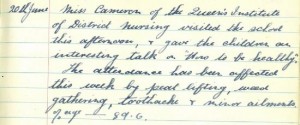 20th June Miss Cameron of the Queen's Institute
of District Nursing visited the school
this afternoon, & gave the children an
interesting talk on "How to be healthy".
The attendance has been affected
this week by peat lifting, weed
gathering, toothache & minor ailments.
89.6.